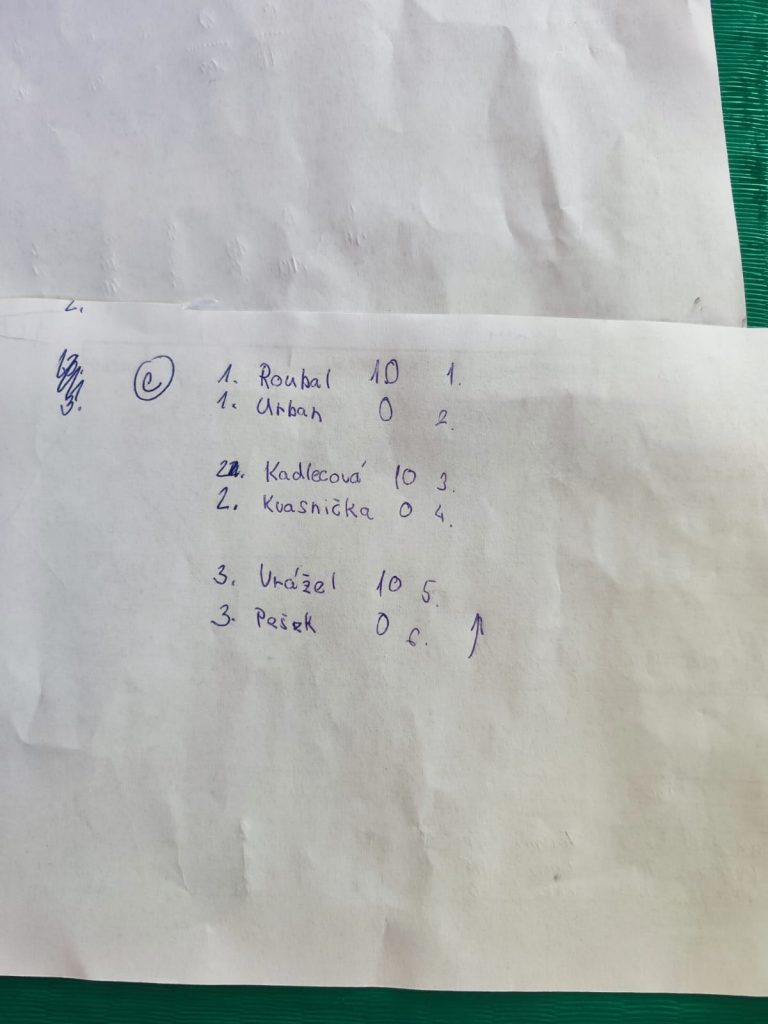 2.
3.
C
1. Roubal 10 1.
1. Urban 0 2.
2. Kadlecová 10 3.
2. Kvasnička 0 4.
3. Vrážel 10 5.
3. Pešek 0 6. ↑